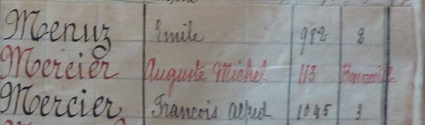 Menuz Emile 982 2
Mercier Auguste Michel 113 Bonneville
Mercier François Alfred 1045 3